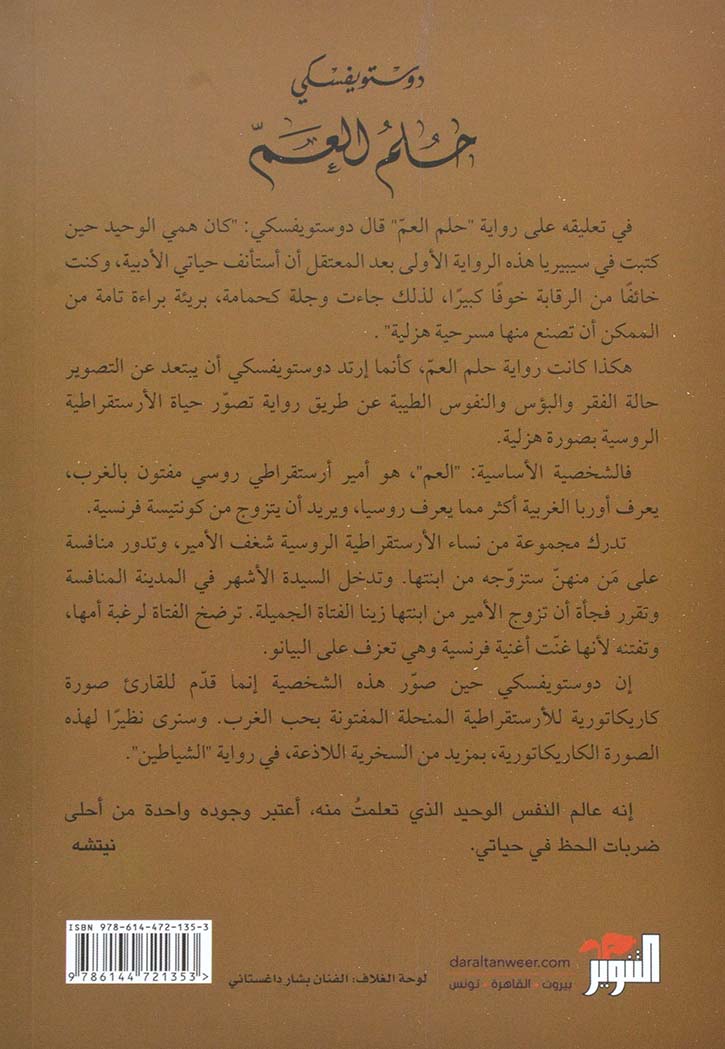 دوستويفسكي
حُلمُ العِمّ
في تعليقه على رواية "حلم العمّ" قال دوستويفسكي: "كان همي الوحيد حين
كتبت في سيبيريا هذه الرواية الأولى بعد المعتقل أن أستأنف حياتي الأدبية، وكنت
خائفًا من الرقابة خوفًا كبيرًا، لذلك جاءت وجلة كحمامة، بريئة براءة تامة من
الممكن أن تصنع منها مسرحية هزلية" .
هكذا كانت رواية حلم العمّ، كأنما إرتد دوستويفسكي أن يبتعد عن التصوير
حالة الفقر والبؤس والنفوس الطيبة عن طريق رواية تصوّر حياة الأرستقراطية
الروسية بصورة هزلية.
فالشخصية الأساسية: "العم"، هو أمير أرستقراطي روسي مفتون بالغرب،
يعرف أوربا الغربية أكثر مما يعرف روسيا، ويريد أن يتزوج من كونتيسة فرنسية.
تدرك مجموعة من نساء الأرستقراطية الروسية شغف الأمير، وتدور منافسة
على مَن منهنّ ستزوّجه من ابنتها. وتدخل السيدة الأشهر في المدينة المنافسة
وتقرر فجأة أن تزوج الأمير من ابنتها زينا الفتاة الجميلة. ترضخ الفتاة لرغبة أمها،
وتفتنه لأنها غنّت أغنية فرنسية وهي تعزف على البيانو.
إن دوستويفسكي حين صوّر هذه الشخصية إنما قدّم للقارئ صورة
كاريكاتورية للأرستقراطية المنحلة المفتونة بحب الغرب. وسنرى نظيرًا لهذه
الصورة الكاريكاتورية، بمزيد من السخرية اللاذعة، في رواية "الشياطين".
إنه عالم النفس الوحيد الذي تعلمتُ منه، أعتبر وجوده واحدة من أحلى
ضربات الحظ في حياتي. نيتشه
ISBN 978-614-472-135-3
9 786144 721353 >
لوحة الغلاف: الفنان بشار داغستاني
daraltanweer.com
بيروت · القاهرة · تونس
التنوير